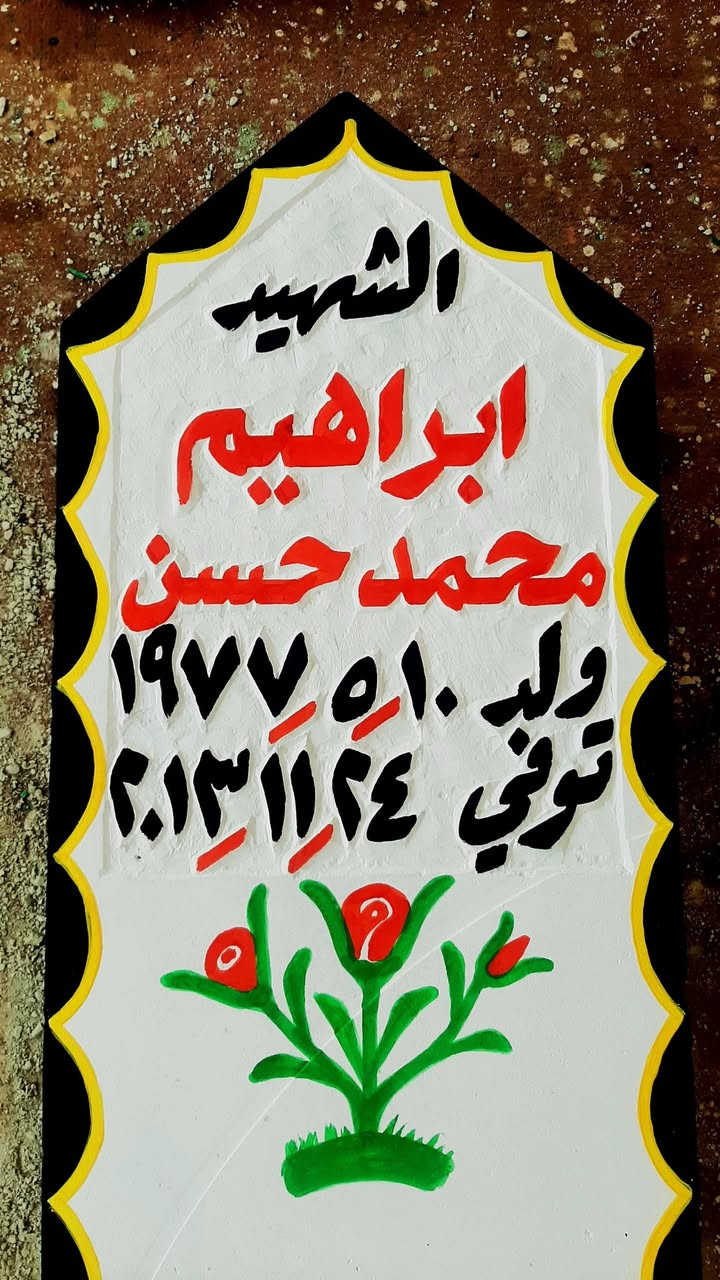 الشهيد
ابراهيم
محمد حسن
ولد ١٠_٥_١٩٧٧
توفي ٢٤_١١_٢٠١٣